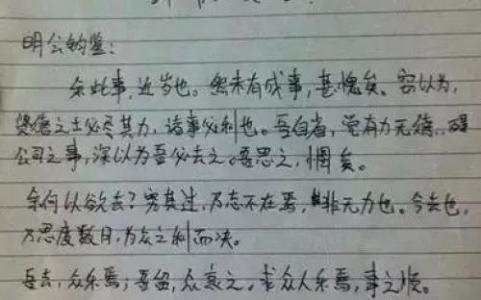 明公钧鉴：
余此事，近岁也。然未有成事，甚愧矣。窃以为，
贤德之士必尽其力，诸事必利也。吾自省，觉有力无绩，碍
公司之事，深以为吾必去之。吾思之，惘矣。
余何以欲去？究其过，乃志不在焉，非无力也。今去也，
乃思度数月，为众之利而决。
吾去，众乐焉；吾留，众哀之。求众人乐焉，事之顺。